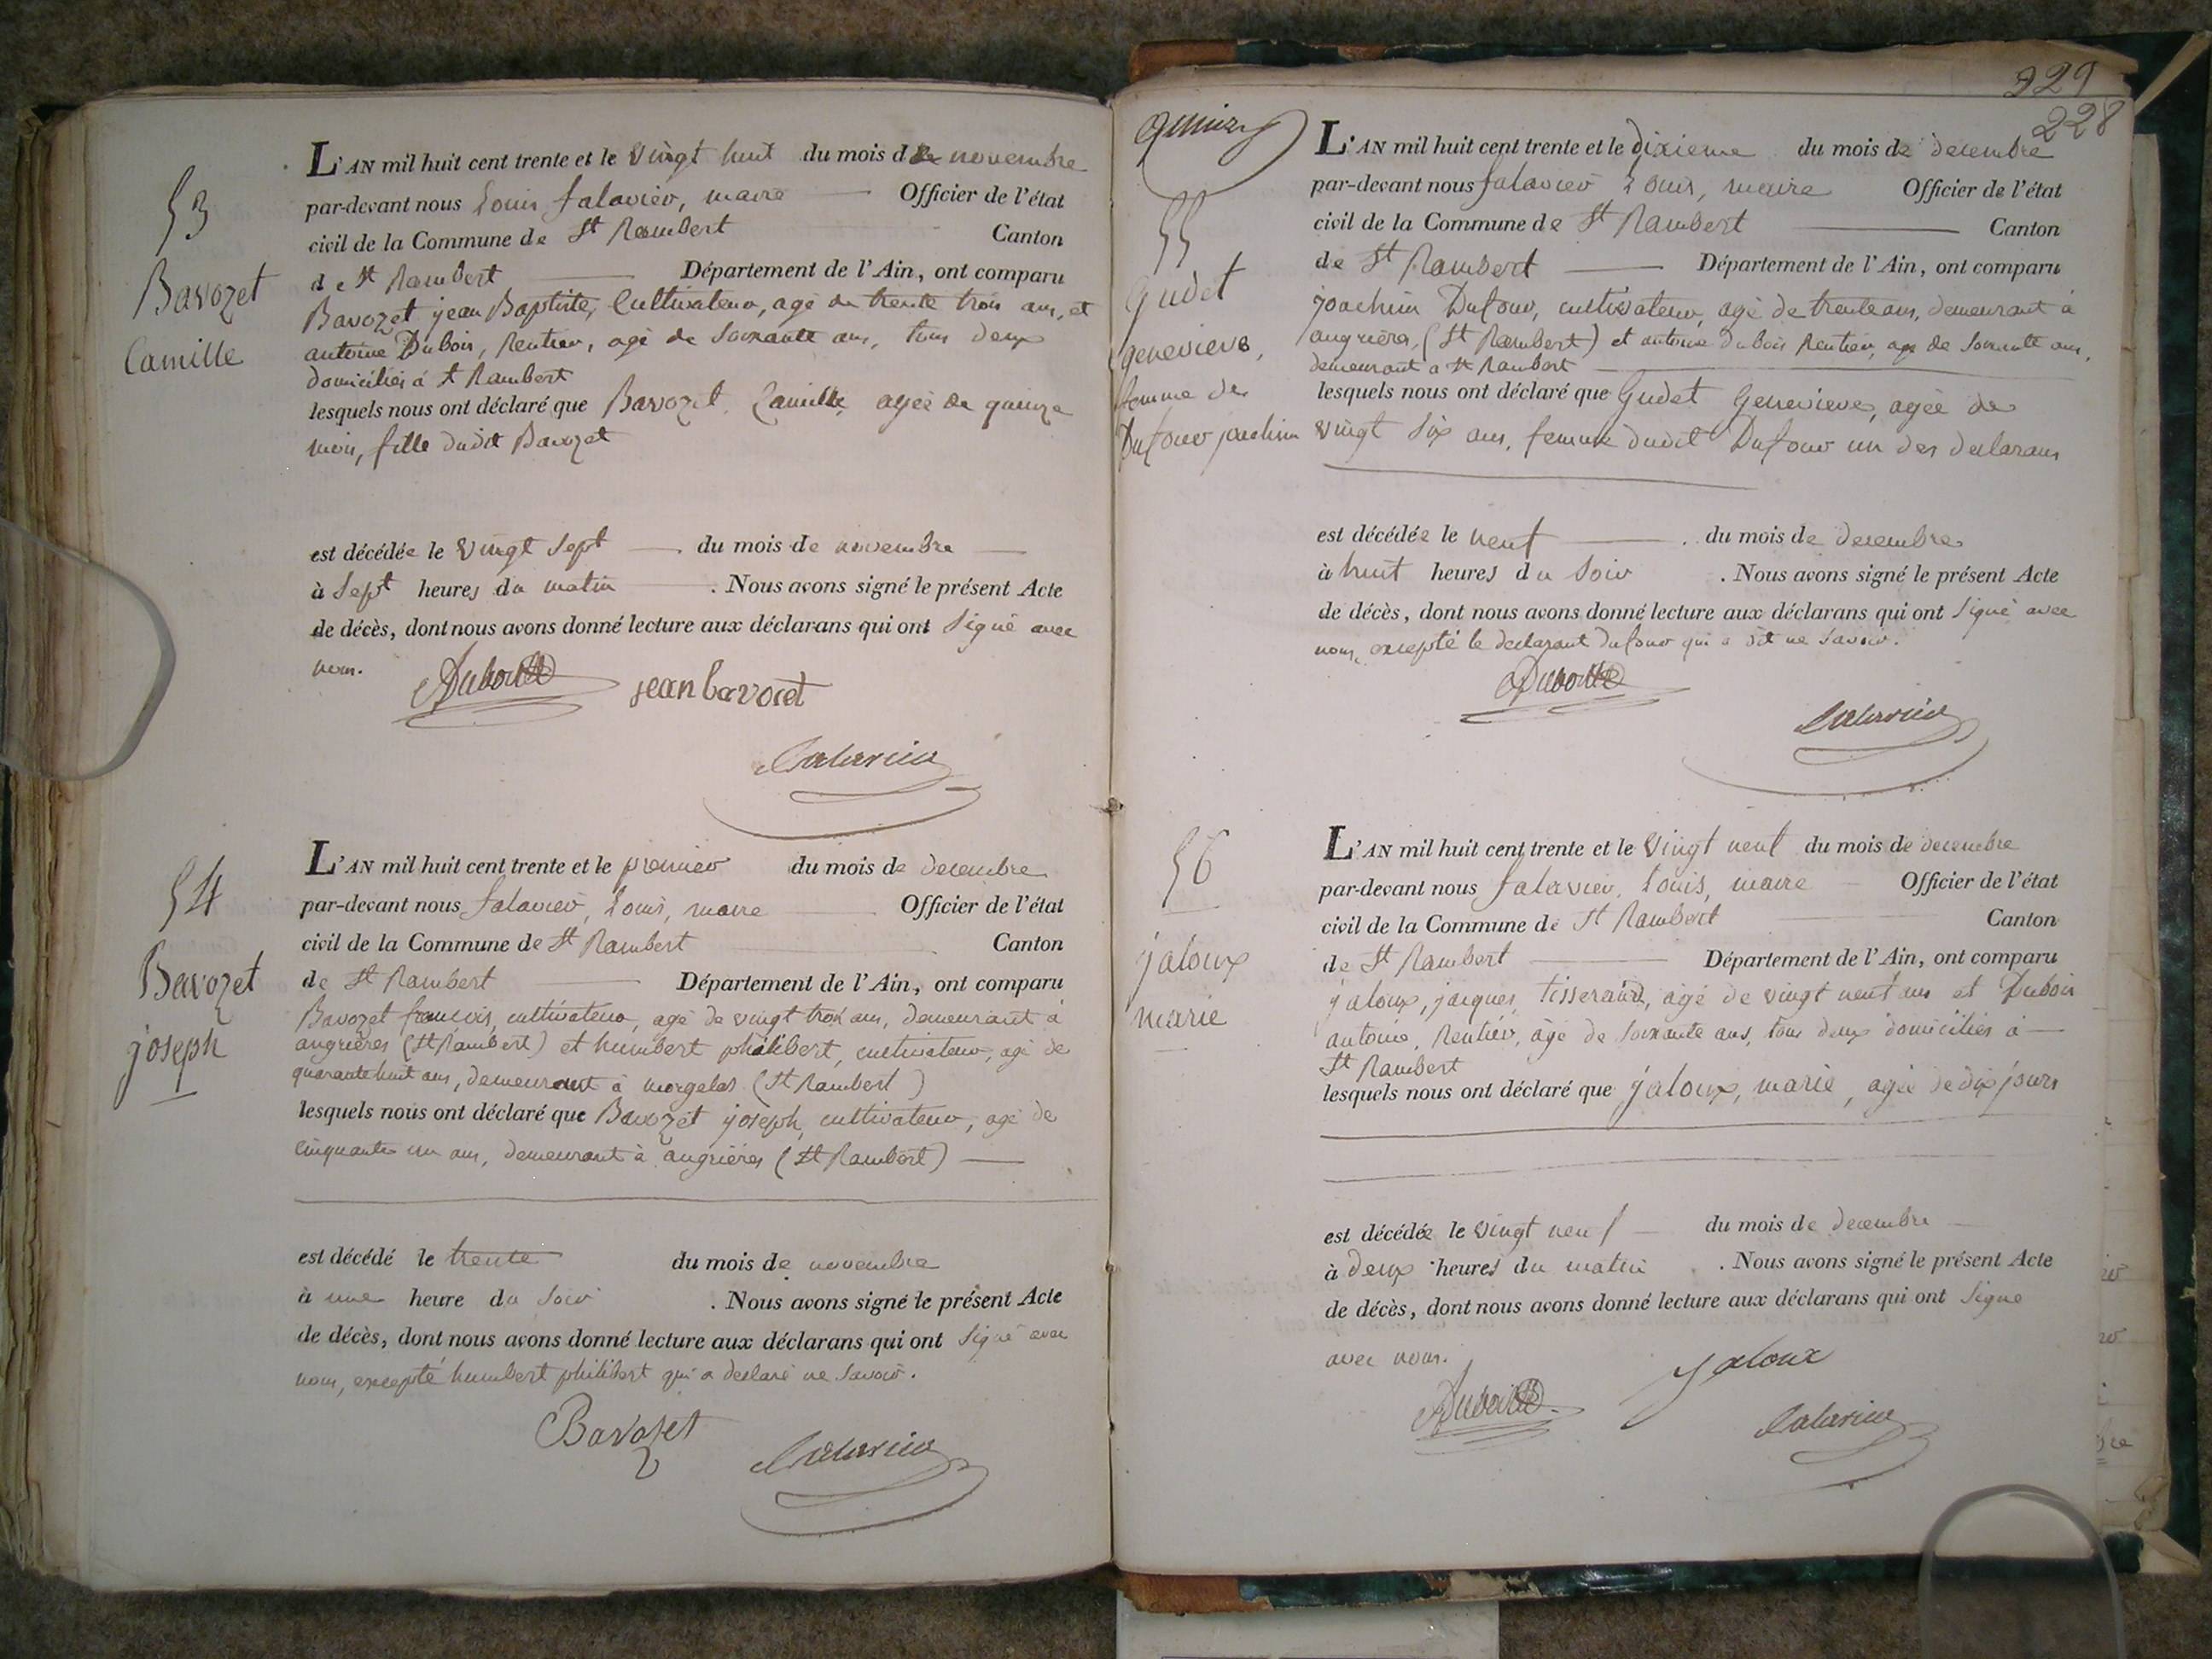 53
Bavozet
Camille
L'AN mil huit cent trente et le vingt huit du mois de novembre
par-devant nous Louis Salavier, maire Officier de l'état
civil de la Commune de St Rambert Canton
de St Rambert Département de l'Ain, ont comparu
Bavozet jean Baptiste, Cultivateur, agé de trente trois ans, et
antoine Dubois, Rentier, agé de soixante ans, tous deux
domiciliés à St Rambert
lesquels nous ont déclaré que Bavozet Camille, agée de quinze
mois, fille dudit Bavozet
est décédée le vingt sept du mois de novembre
à sept heures du matin . Nous avons signé le présent Acte
de décès, dont nous avons donné lecture aux déclarans qui ont signé avec
nous.
Dubois jean bavozet
Salavier
54
Bavozet
joseph
L'AN mil huit cent trente et le premier du mois de decembre
par-devant nous Salavier, Louis, maire Officier de l'état
civil de la Commune de St Rambert Canton
de St Rambert Département de l'Ain, ont comparu
Bavozet francois, cultivateur, agé de vingt trois ans, demeurant à
angrieres (St Rambert) et humbert philibert, cultivateur, agé de
quarante huit ans, demeurant à morgelas (St Rambert)
lesquels nous ont déclaré que Bavozet joseph, cultivateur, agé de
cinquante un ans, demeurant à angrières (St Rambert)
est décédé le trente du mois de novembre
à une heure du soir . Nous avons signé le présent Acte
de décès, dont nous avons donné lecture aux déclarans qui ont signé avec
nous, excepté humbert philibert qui a declaré ne savoir.
Bavozet
Salavier
229
228
55
Gudet
genevieve,
femme de
Dufour joachim
L'AN mil huit cent trente et le dixieme du mois de decembre
par-devant nous Salavier Louis, maire Officier de l'état
civil de la Commune de St Rambert Canton
de St Rambert Département de l'Ain, ont comparu
joachim Dufour, cultivateur, agé de trente ans, demeurant à
angrières, (St Rambert) et antoine dubois Rentier, agé de soixante ans,
demeurant a St Rambert
lesquels nous ont déclaré que Gudet Genevieve, agée de
vingt six ans, femme dudit Dufour un des declarans
est décédée le neuf . du mois de decembre
à huit heures du soir . Nous avons signé le présent Acte
de décès, dont nous avons donné lecture aux déclarans qui ont signé avec
nous, excepté le declarant dufour qui a dit ne savoir.
Dubois
Salavier
56
jaloux
marie
L'AN mil huit cent trente et le vingt neuf du mois de decembre
par-devant nous Salavier, Louis, maire Officier de l'état
civil de la Commune de St Rambert Canton
de St Rambert Département de l'Ain, ont comparu
jaloux, jacques, tisserand, agé de vingt neuf ans et Dubois
antoine, Rentier, âgé de soixante ans, tous deux domiciliés à
St Rambert
lesquels nous ont déclaré que jaloux, marie, agée de dix jours
est décédée le vingt neuf du mois de decembre
à deux heures du matin . Nous avons signé le présent Acte
de décès, dont nous avons donné lecture aux déclarans qui ont signé
avec nous.
Dubois Jaloux
Salavier